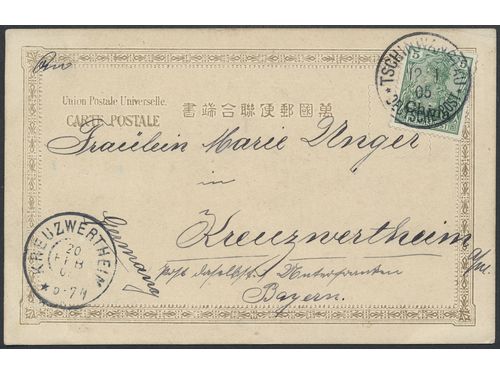 Union Postale Universelle.
CARTE POSTALE
萬國郵便聯合端書
TSCHINWANGTAU
12 1
05
DEUTSCHE POST
5
China
Fräulein Marie Unger
in
Kreuzwertheim
Post daselbst, Unterfranken
Bayern.
Germany
KREUZWERTHEIM
20
FEB